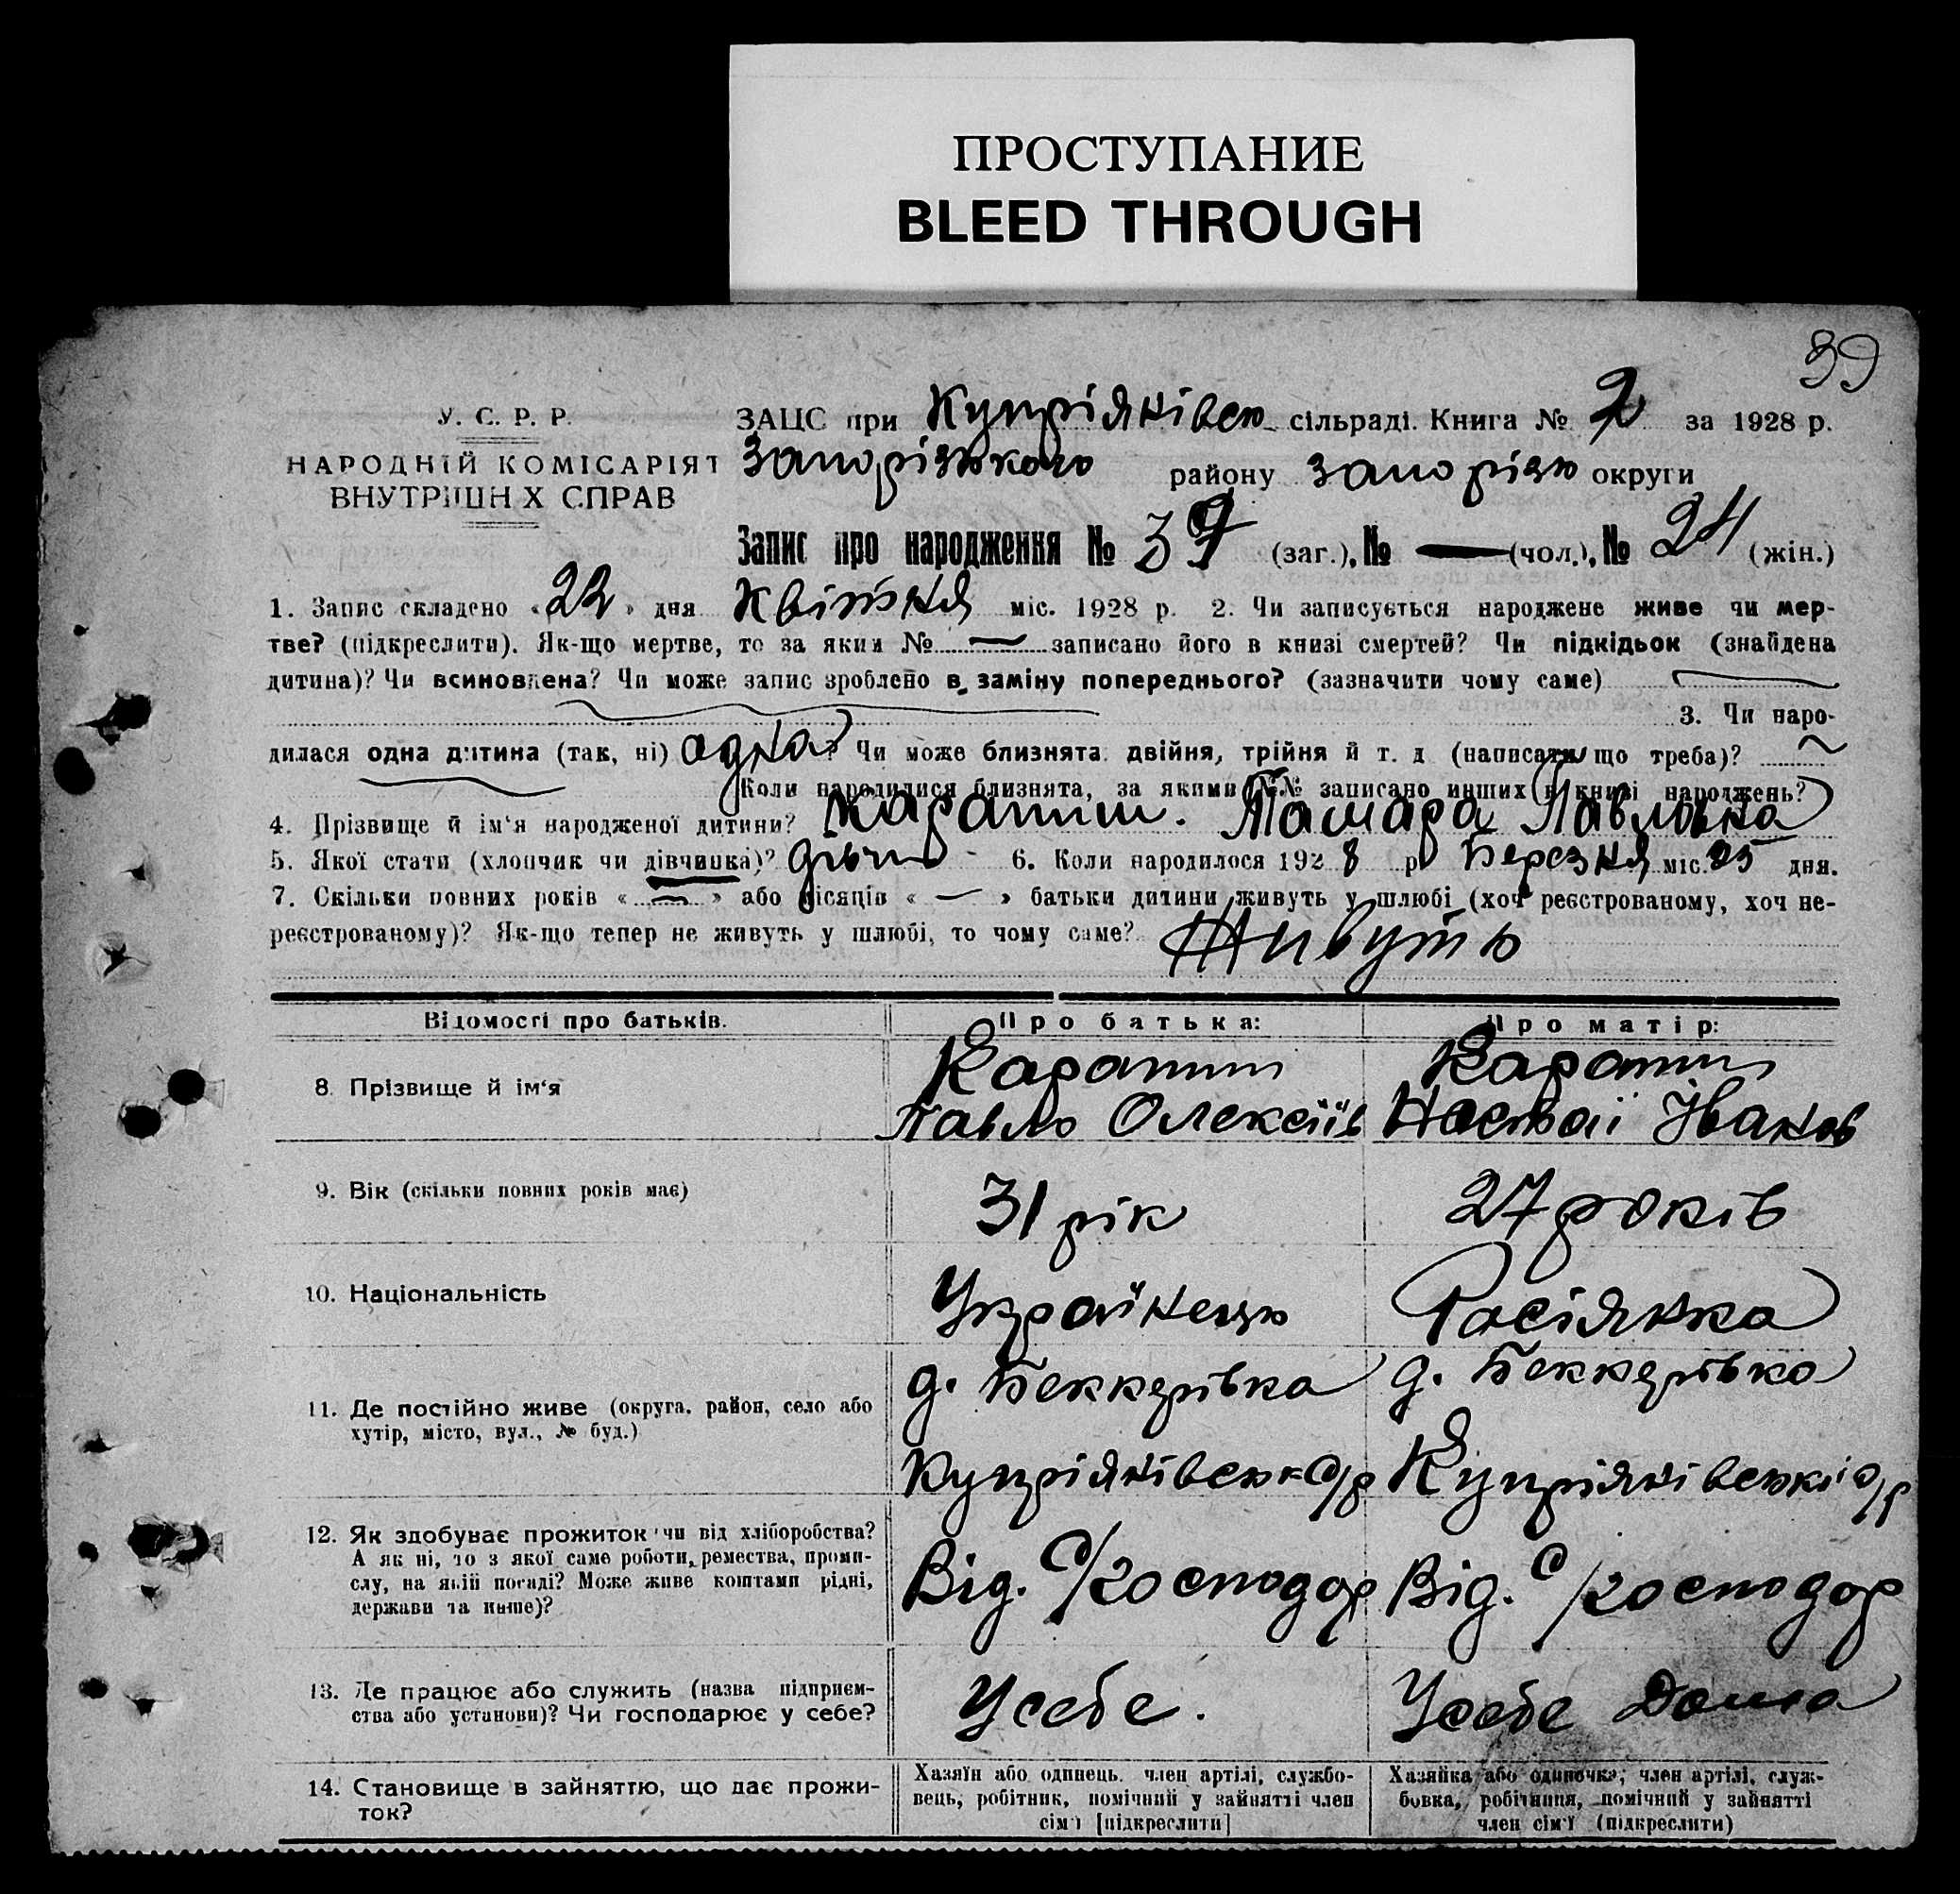 ПРОСТУПАНИЕ
BLEED THROUGH
39
У. С. Р. Р.
НАРОДНІЙ КОМІСАРІЯТ
ВНУТРІШНІХ СПРАВ
ЗАЦС при Купріянівсь. сільраді. Книга № 2 за 1928 р.
Запорізького району Запорізь округи
Запис про народження № 39 (заг.), № — (чол.), № 24 (жін.)
1. Запис складено «22» дня Квітня міс. 1928 р. 2. Чи записується народжене живе чи мер-
тве? (підкреслити). Як-що мертве, то за яким № — записано його в книзі смертей? Чи підкідьок (знайдена
дитина)? Чи всиновлена? Чи може запис зроблено в заміну попереднього? (зазначити чому саме)
3. Чи наро-
дилася одна дитина (так, ні) одна? Чи може близнята: двійня, трійня й т. д (написати що треба)?
Коли народилися близнята, за якими №№ записано инших в книзі народжень?
4. Прізвище й ім'я народженої дитини? Каратин. Тамара Павловна
5. Якої стати (хлопчик чи дівчинка)? дівчин 6. Коли народилося 1928 р Березня міс. 25 дня.
7. Скільки повних років « — » або місяців « — » батьки дитини живуть у шлюбі (хоч реєстрованому, хоч не-
реєстрованому)? Як-що тепер не живуть у шлюбі, то чому саме? Живуть
Відомості про батьків. Про батька: Про матір:
8. Прізвище й ім'я Каратин Каратин
Павло Олексіїв Настаї Іванов
9. Вік (скільки повних років має) 31 рік 27 років
10. Національність Українець Росіянка
д. Беккерівка д. Беккерівка
11. Де постійно живе (округа, район, село або
хутір, місто, вул., № буд.)
Купріянівськ с/р Купріянівські с/р
12. Як здобуває прожиток чи від хліборобства?
А як ні, то з якої саме роботи, ремества, проми-
слу, на якій посаді? Може живе коштами рідні,
держави та инше)?
Від. с/господар Від. с/господар
13. Де працює або служить (назва підприєм-
ства або установи)? Чи господарює у себе?
Усебе. Усебе Дома
14. Становище в зайняттю, що дає прожи-
ток?
Хазяїн або одинець, член артілі, службо-
вець, робітник, помічний у зайнятті член
сім'ї [підкреслити]
Хазяйка або одиночка, член артілі, служ-
бовка, робітниця, помічний у зайнятті
член сім'ї (підкреслити)